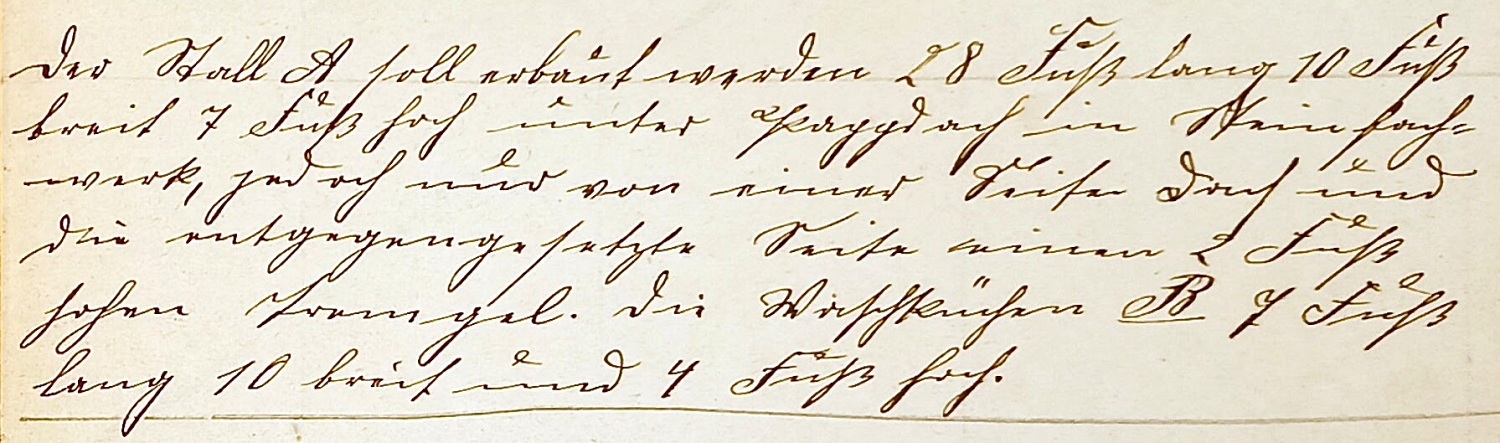 Der Stall A soll erbaut werden 28 Fuß lang 10 Fuß
breit 7 Fuß hoch unter Pappdach in Steinfach-
werk, jedoch nur von einer Seite Dach und
die entgegengesetzte Seite einen 2 Fuß
hohen . Die Waschküchen B 7 Fuß
lang 10 breit und 4 Fuß hoch.